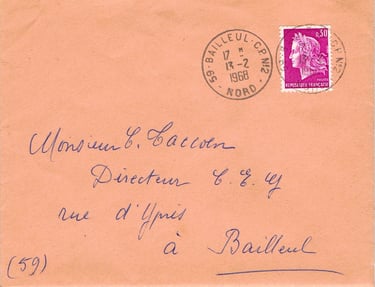 59-BAILLEUL-C.P.N°2
17 H
13-2
1968
NORD
0,30
REPUBLIQUE FRANÇAISE
Monsieur C. Taccoen
Directeur C. E. G
rue d'Ypres
à Bailleul
(59)